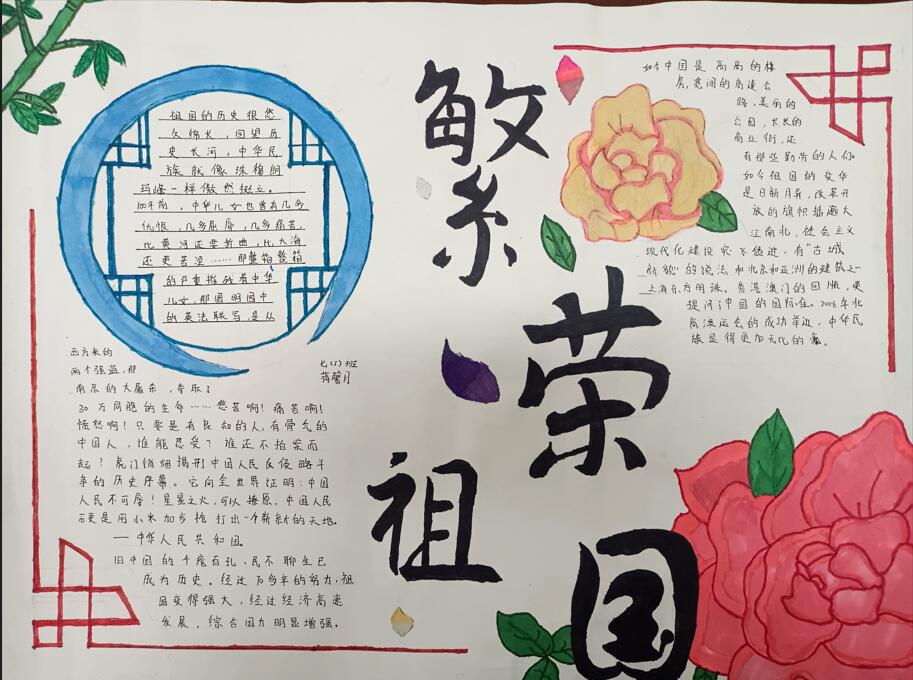 繁荣祖国
祖国的历史很悠
久绵长，回望历
史长河，中华民
族就像珠穆朗
玛峰一样傲然挺立。
100年前，中华儿女也曾有几多
仇恨，几多屈辱，几多痛苦，
比黄河还要曲，比大海
还更苦涩……那
的严重摧残着中华
儿女，那圆明园中
的英法联军，是从
西方来的
两个强盗，那
南京的大屠杀，夺取了
30万同胞的生命……悲苦啊！痛苦啊！
愤怒啊！只要是有良知的人，有骨气的
中国人，谁能忍受？谁还不拍案而
起？虎门销烟揭开中国人民反侵略斗
争的历史序幕。它向全世界证明：中国
人民不可辱！星星之火，可以燎原。中国人民
硬是用小米加步枪打出一个崭新的天地。
——中华人民共和国。
旧中国的千疮百孔、民不聊生已
成为历史。经过70多年的努力，祖
国变得强大，经过经济高速
发展，综合国力明显增强。
七（5）班
蒋馨月
如今中国是高高的楼
房，宽阔的高速公
路，美丽的
公园，长长的
商业街，还
有那些勤劳的人们。
如今祖国的变华
是日新月异，改革开
放的旗帜插遍大
江南北，社会主义
现代化建设突飞猛进，有“古城
新貌”的说法和北京和亚洲的建筑之一
上海东方明珠。香港澳门的回归，更
提问了中国的国际住。2008年北
京奥运会的成功举边，中华民
族显得更加无化的